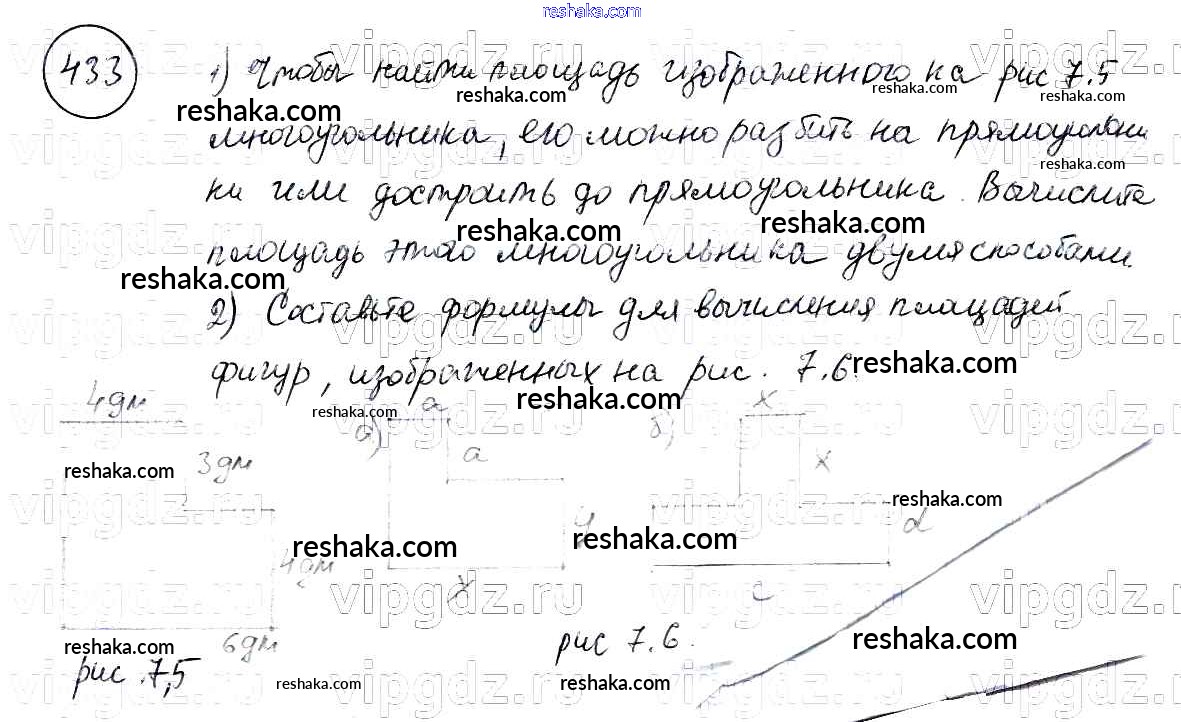 reshaka.com
433
1) Чтобы найти площадь изображенного на рис 7.5
многоугольника, его можно разбить на прямоугольни
ки или достроить до прямоугольника. Вычислите
площадь этого многоугольника двумя способами.
2) Составьте формулы для вычисления площадей
фигур, изображенных на рис. 7.6.
4дм
3дм
4дм
6дм
рис. 7,5
а)
a
a
y
x
б)
x
x
d
c
рис 7.6.
vipgdz.ru
reshaka.com